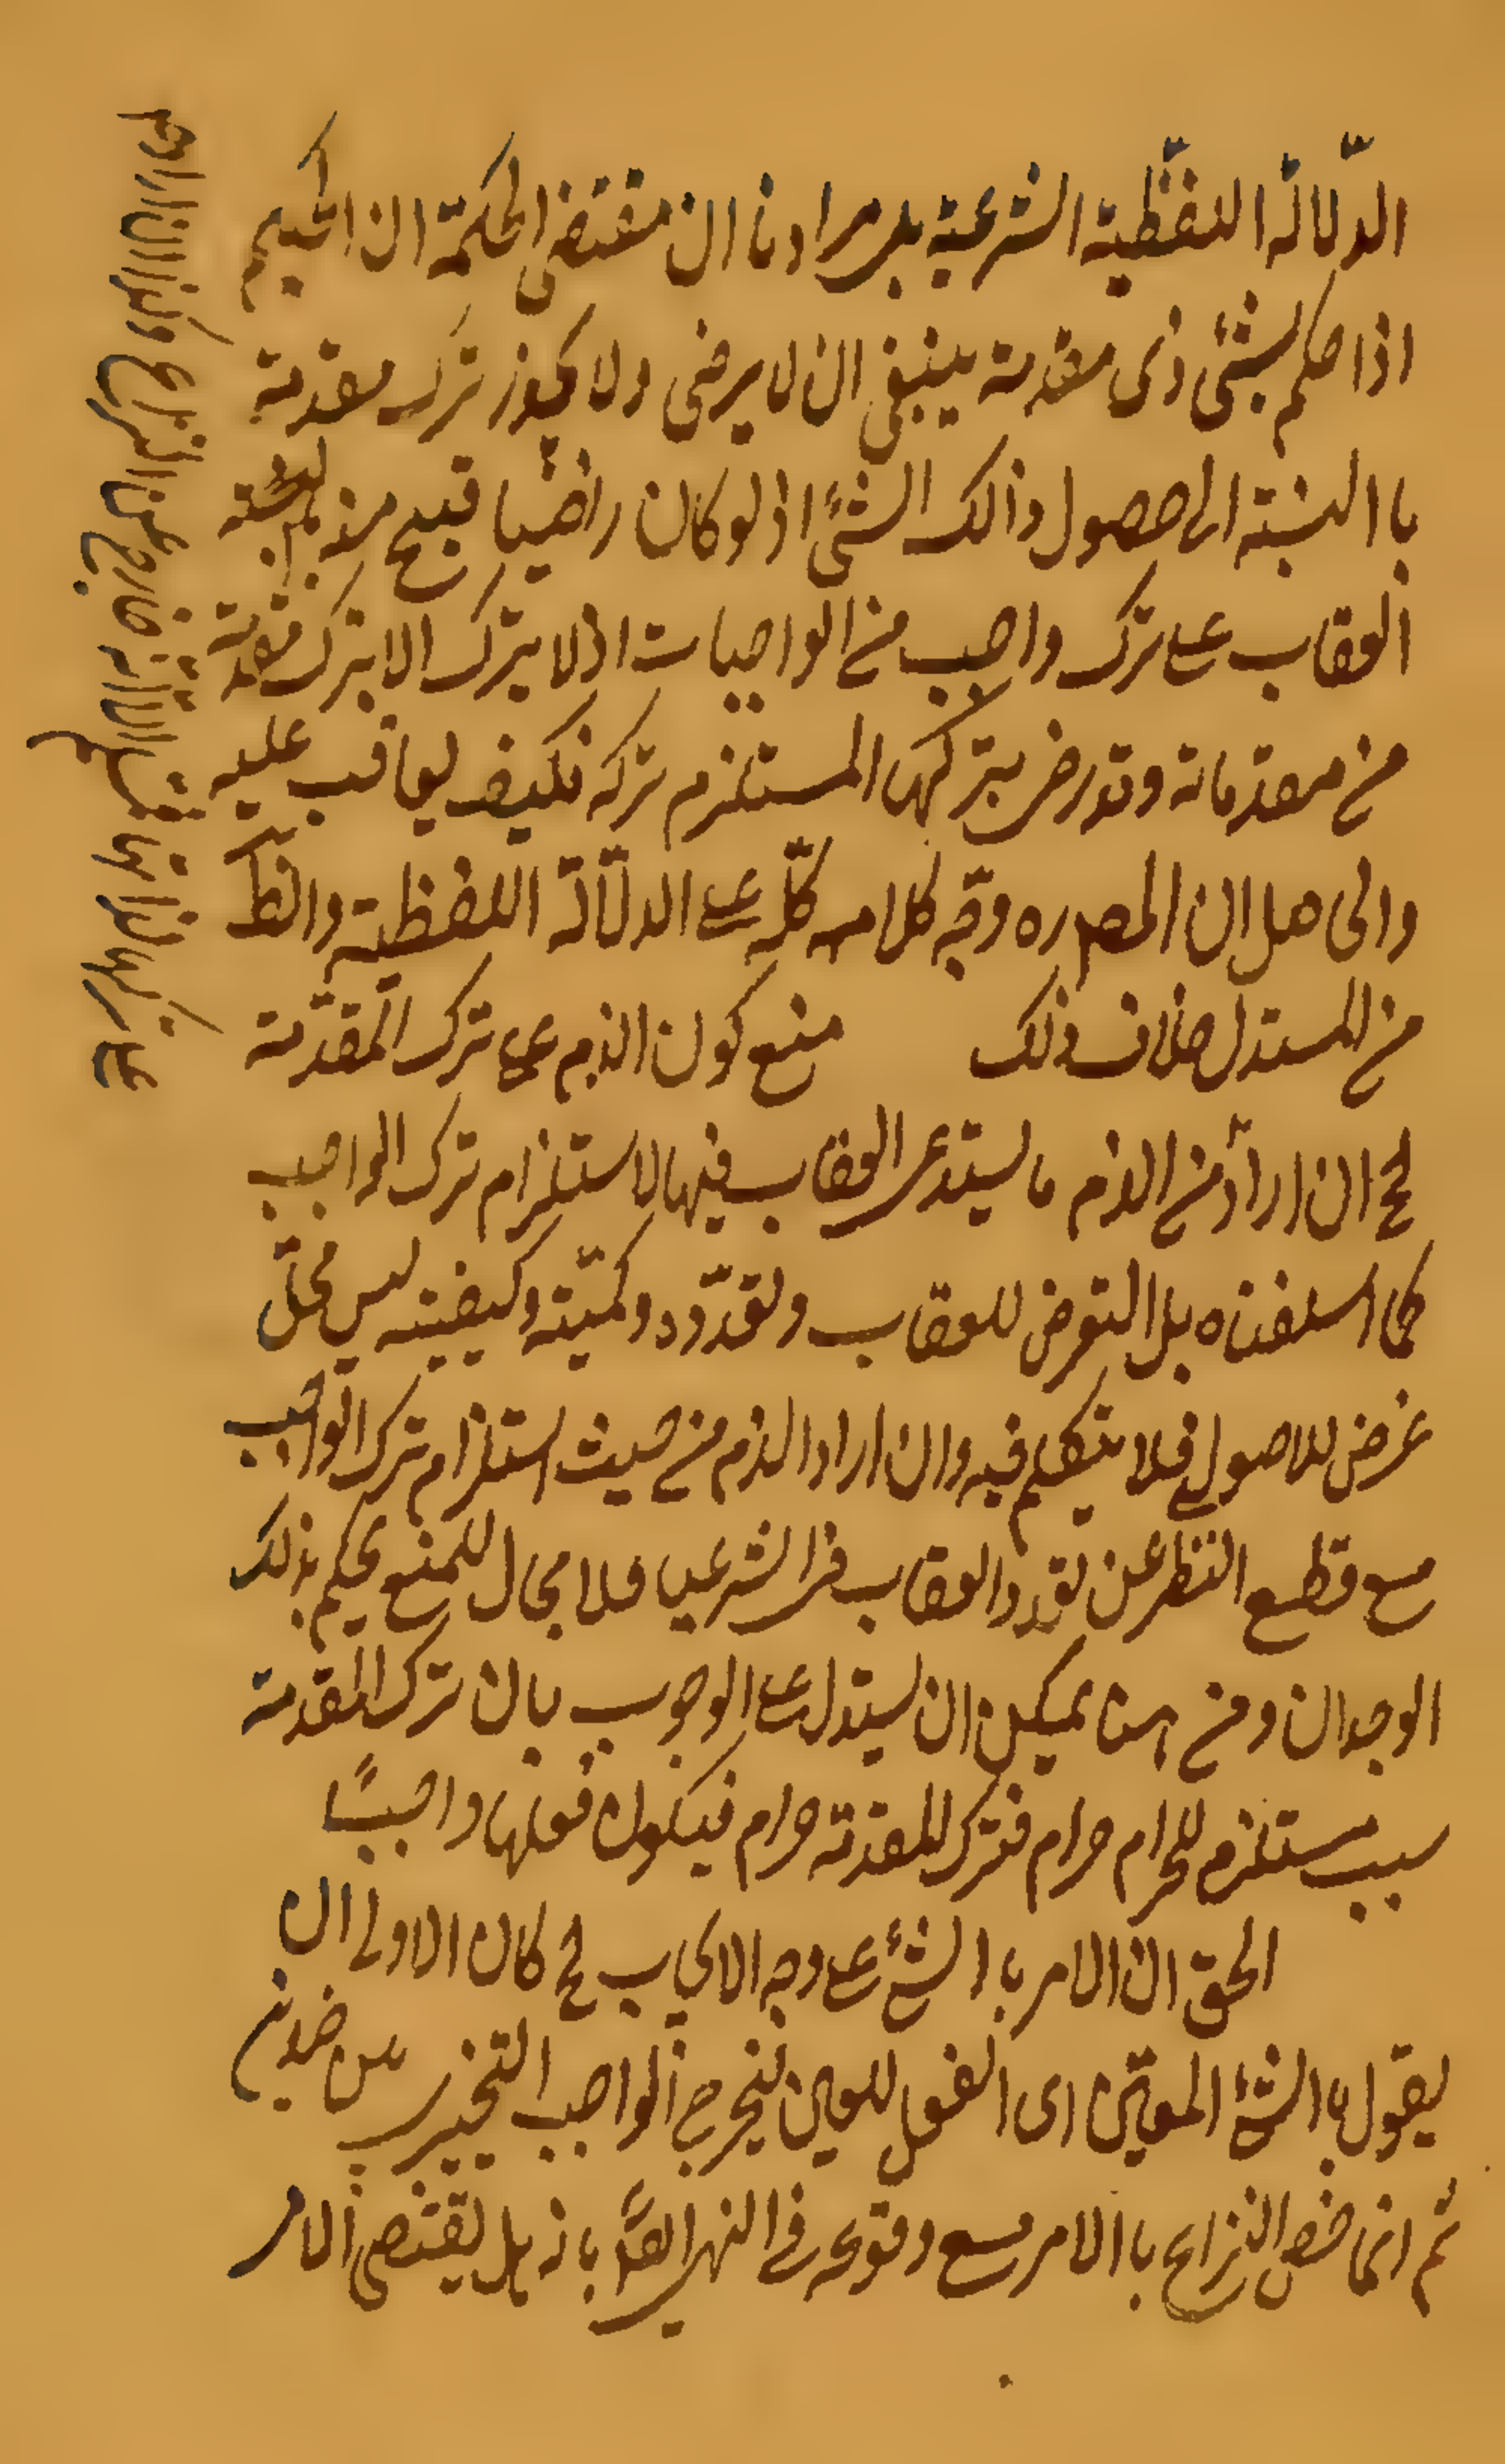 الدّلالة اللفظّية الشرعية بل مرادنا ان مقتضى الحكمة ان الحكيم
اذا حكم لشئ ذى مقدمة ينبغى ان لا يرضى ولا يجوز ترك مقدمة
با النسبة الى حصول ذالك الشئ اذ لو كان راضيا قبيح منه
العقاب على ترك واجب من الواجبات اذ لا يترك الا بترك مقدمة
من مقدماته وقد رضى بتركها المستلزم تركه فكيف يعاقب عليه
والحاصل ان المصره وجّه كلامه كلّه على الدلالة اللفظية والظ
من المستدل خلاف ذلك منع كون الذم على ترك المقدّمة
لح ان اراد من الذم ما يستدعى العقاب فيها لاستلزام ترك الواجب
كما اسلفناه بل التعرض للعقاب وتعدّده وكميّته وكيفيته ليس محلّ
غرض للاصولى فلا يتكلم فيه وان اراد الذم من حيث استلزام ترك الواجب
مع قطع النظر عن تعدد العقاب فى الشرعيا فلا مجال للمنع يحكم بذلك
الوجدان ومن هنا يمكن ان يستدل على الوجوب بان ترك المقدمة
سبب مستلزم للحرام حرام فترك المقدمة حرام فيكون فعلها واجبًا
الحق ان الامر با الشئ على وجه الايجاب لح كان الاولى ان
يقول با الشئ المعيّن اى الفعل المعين ليخرج الواجب التخيير
ثم انما خص النزاع با الامر مع وقوعه فى النهى ايضًا بانه هل يقتضى الامر